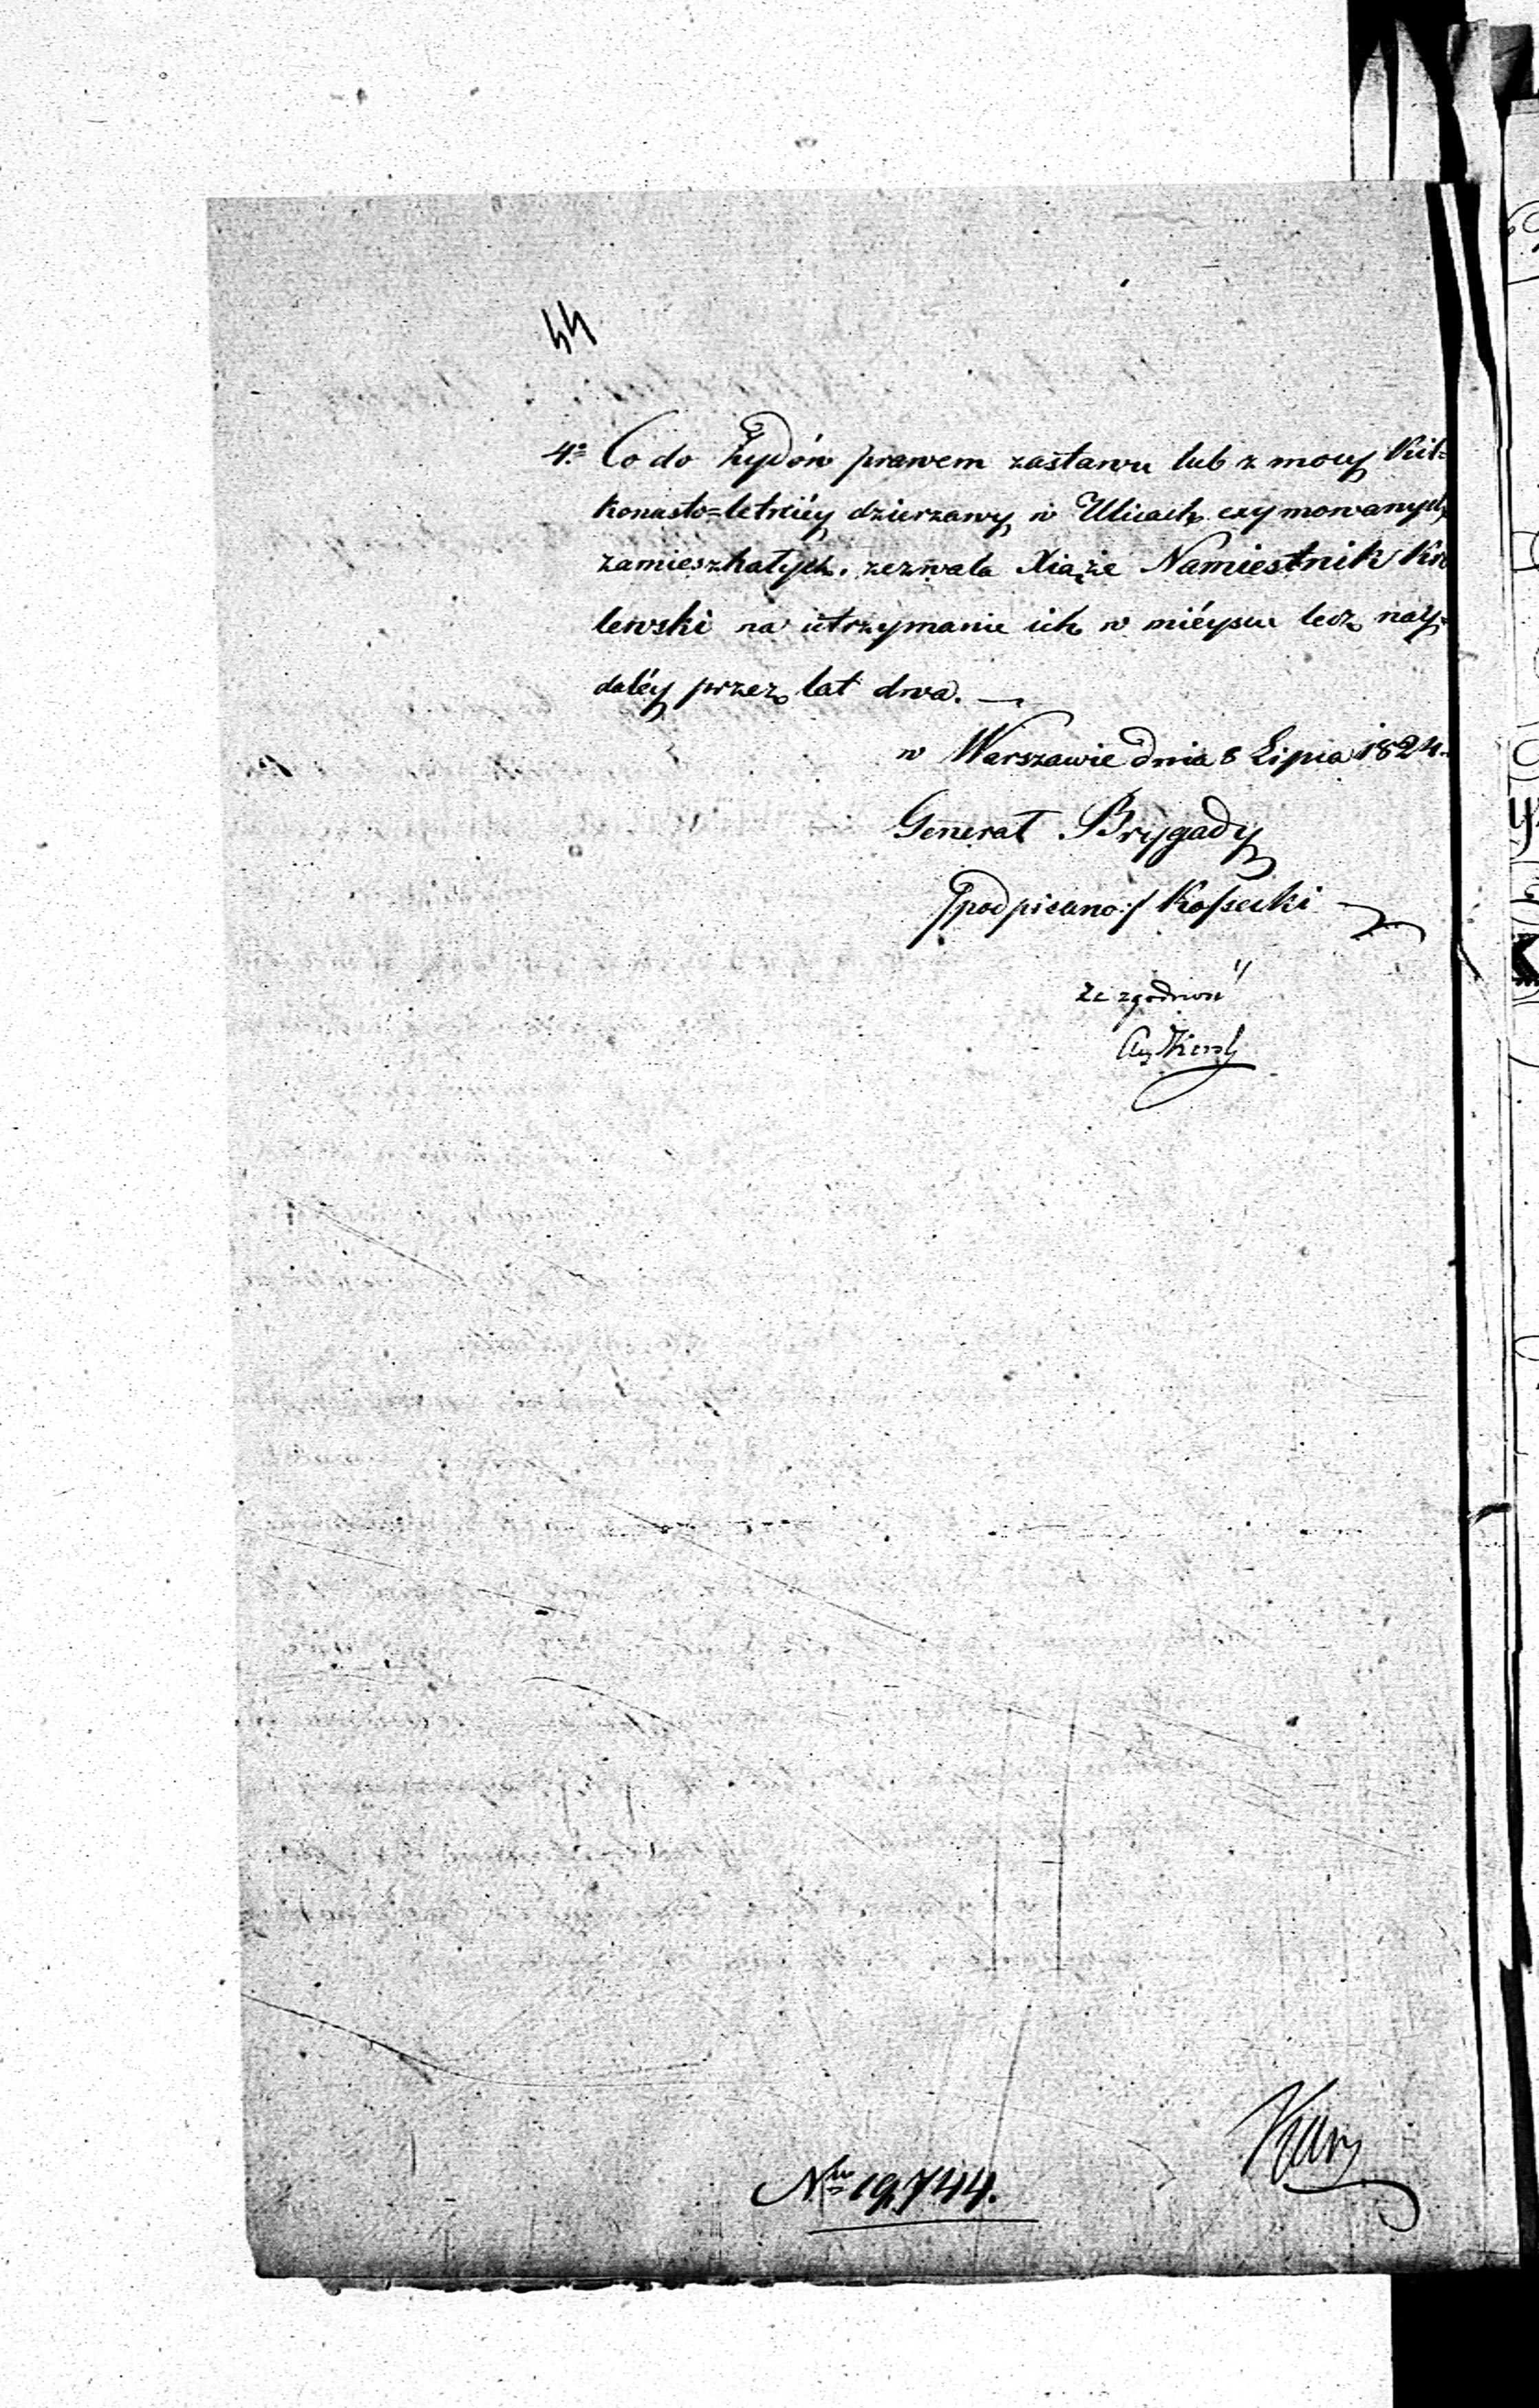 44
4º Co do Żydów prawem zastawu lub z mocy kil=
konasto=letniéy dzierzawy w Ulicach exymowanych
zamieszkałych, zezwala Xiąże Namiestnik Kró
lewski na utrzymanie ich w miéyscu lecz nay=
daléy przez lat dwa. —
w Warszawie dnia 8 Lipca 1824.
Generał Brygady
/podpisano:/ Kossecki
Za zgodność
Nro 19,744.